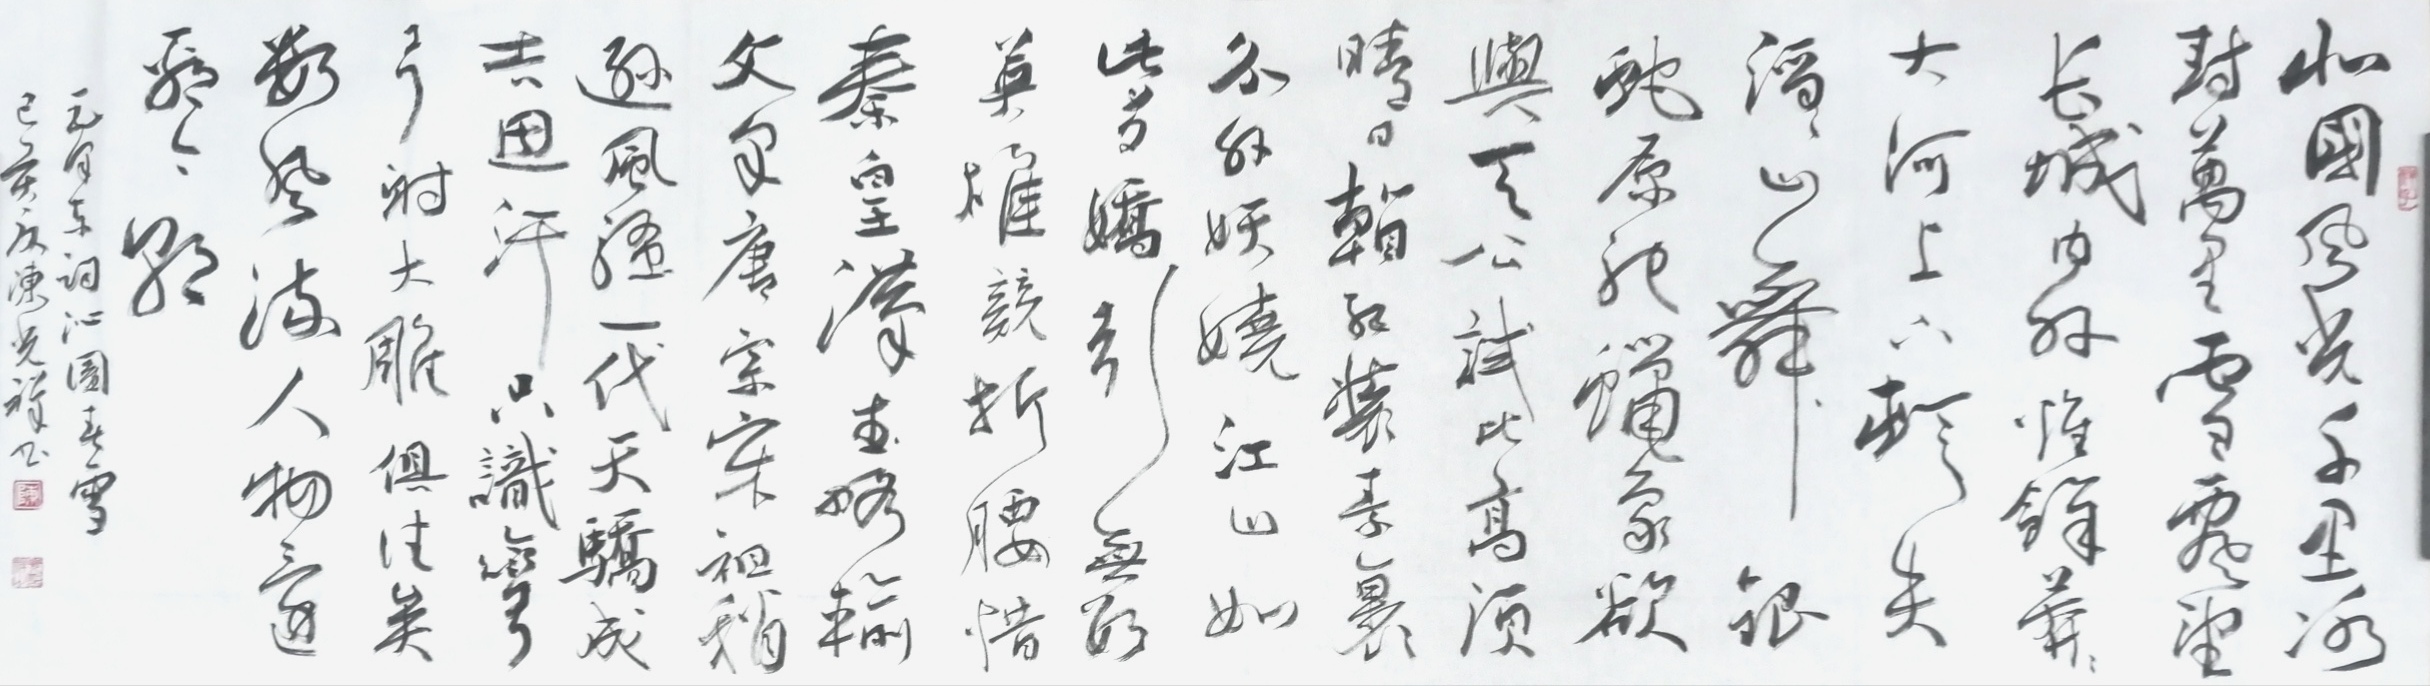 北國風光千里冰
封萬里雪飄望
长城内外惟餘莽々
大河上下頓失
滔々山舞銀
蛇原馳蠟象欲
與天公試比高須
晴日看红装素裹
分外妖嬈江山如
此多嬌引無數
英雄競折腰惜
秦皇漢武略輸
文采唐宗宋祖稍
遜風騷一代天驕成
吉思汗只識彎
弓射大雕俱往矣
數风流人物還
看今朝
毛泽东词沁園春雪
己亥 陳光祥书